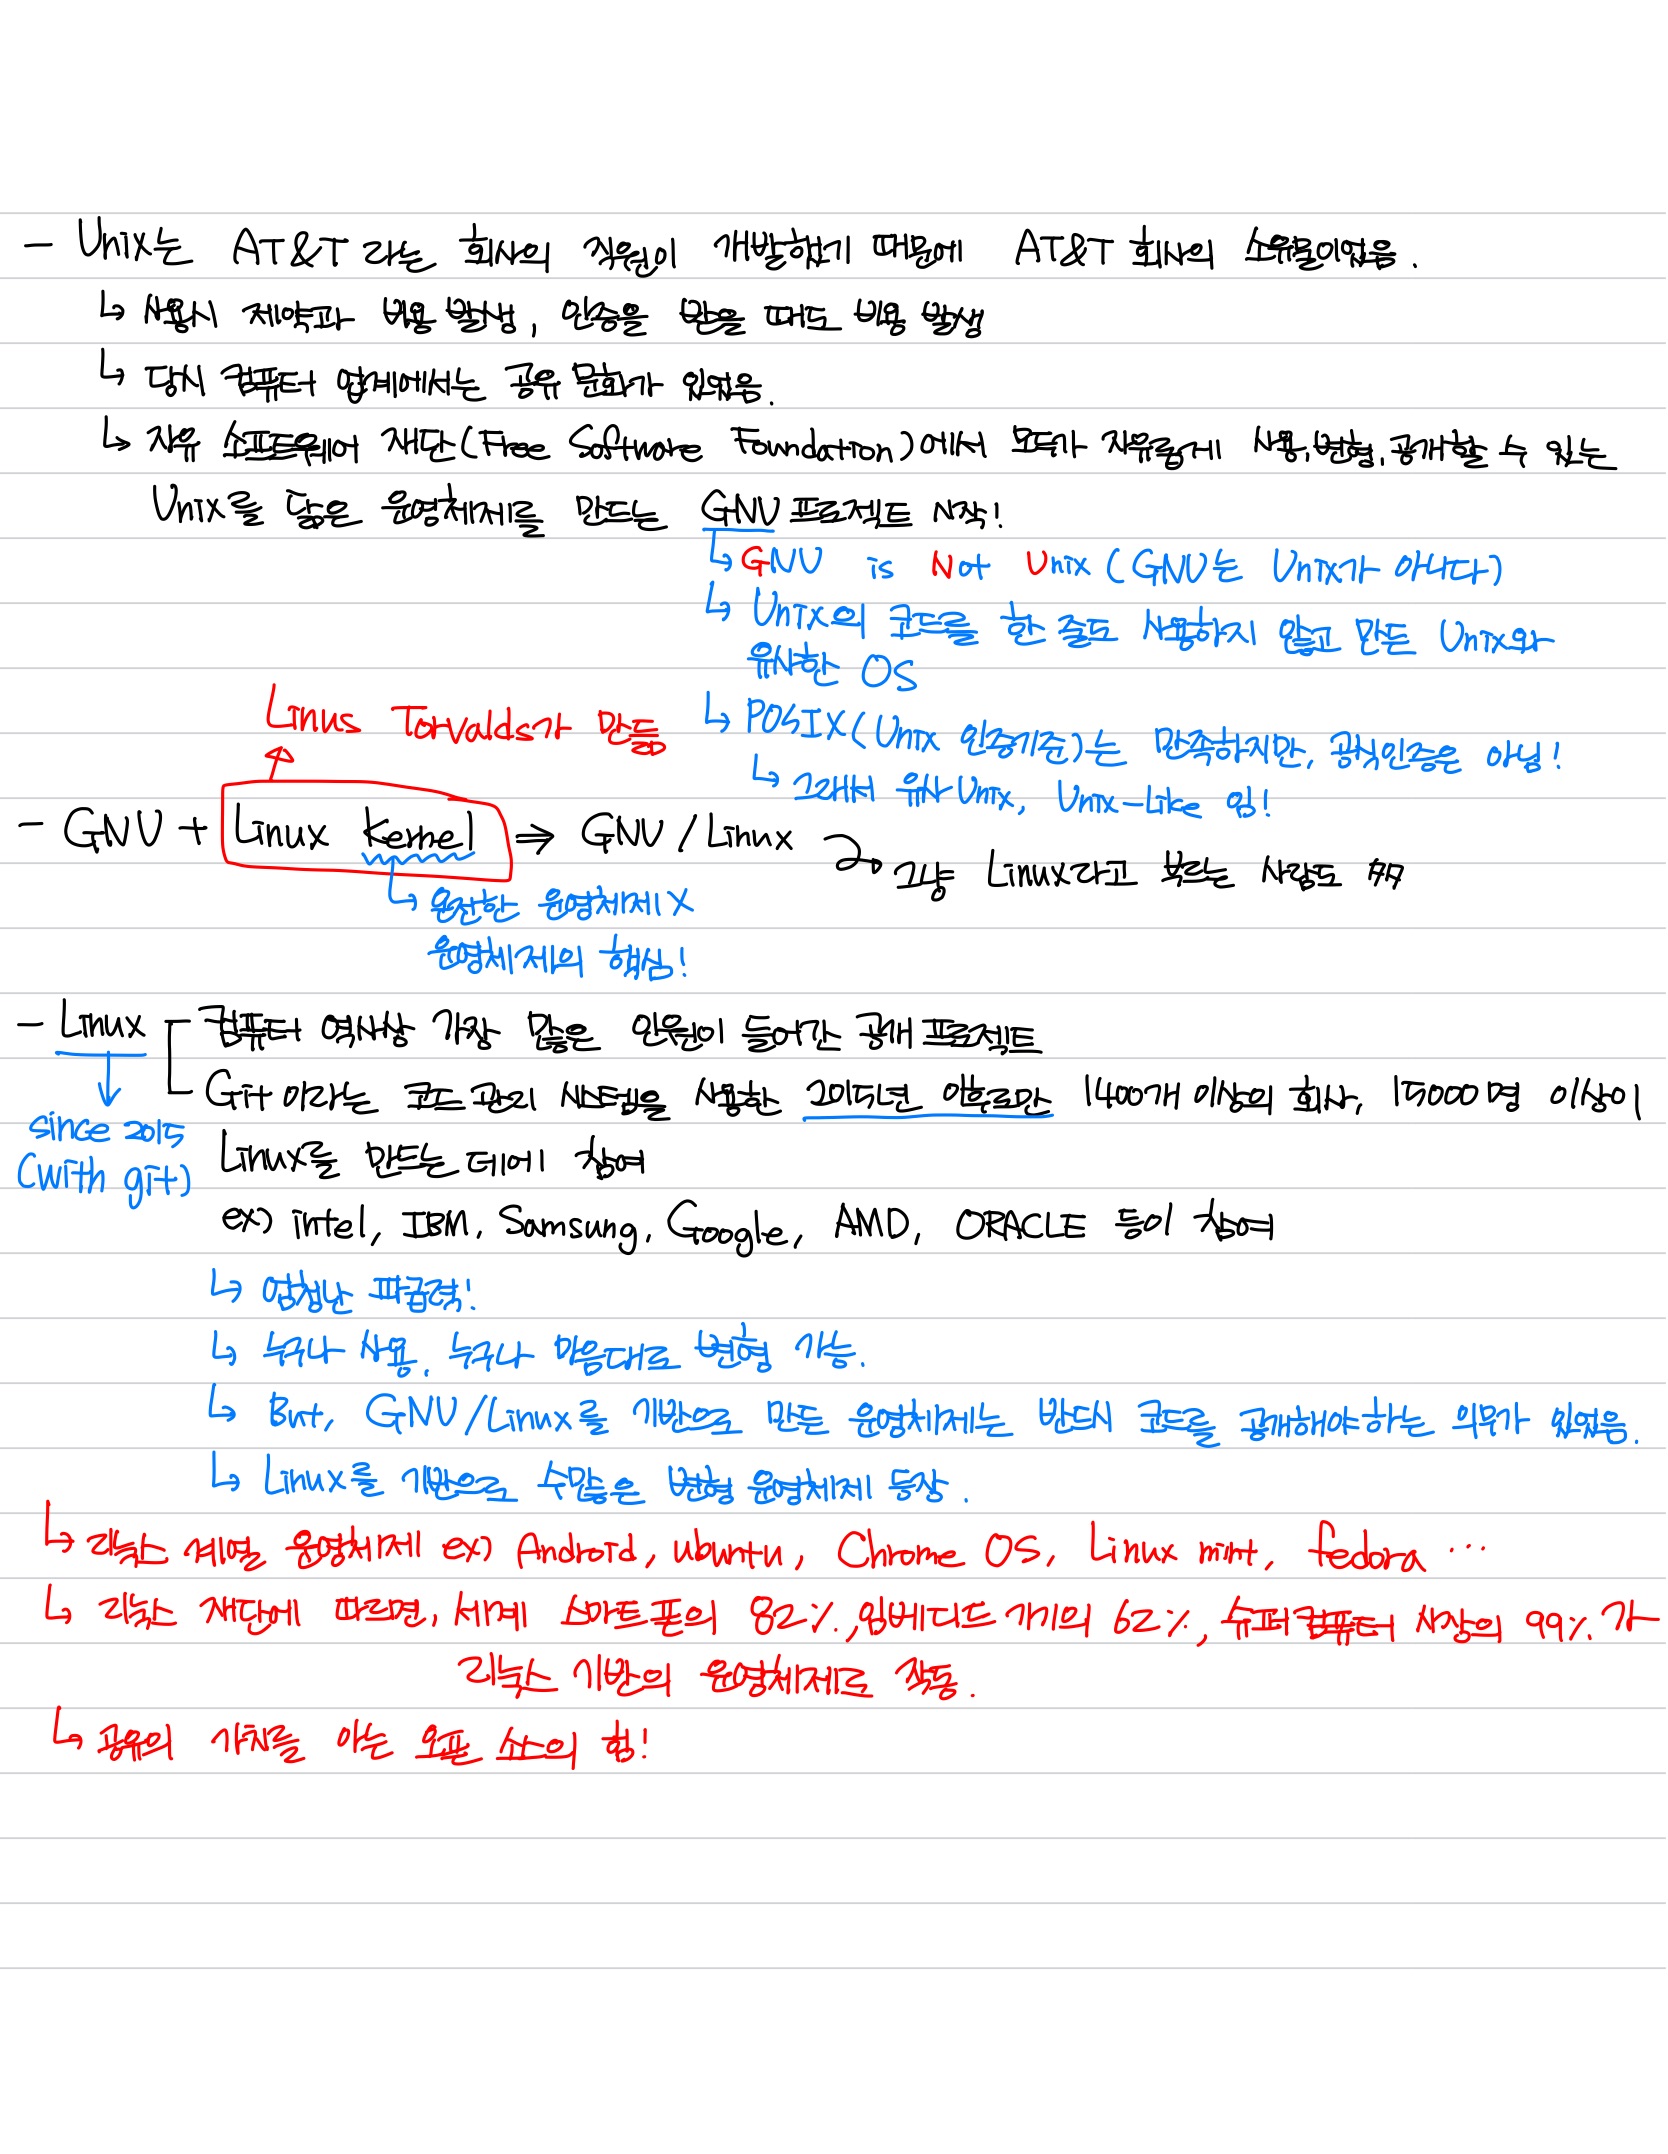 - Unix는 AT&T 라는 회사의 직원이 개발했기 때문에 AT&T 회사의 소유물이었음.
↳ 사용시 제약과 비용 발생, 인증을 받을 때도 비용 발생
↳ 당시 컴퓨터 업계에서는 공유 문화가 있었음.
↳ 자유 소프트웨어 재단(Free Software Foundation)에서 모두가 자유롭게 사용,변형,공개할 수 있는
Unix를 닮은 운영체제를 만드는 GNU 프로젝트 시작!
↳ GNU is Not Unix (GNU는 Unix가 아니다)
↳ Unix의 코드를 한 줄도 사용하지 않고 만든 Unix와
유사한 OS
↳ POSIX(Unix 인증기준)는 만족하지만, 공식인증은 아님!
↳ 그래서 유사Unix, Unix-Like 임!
Linus Torvalds가 만듦
- GNU + Linux Kernel ⇒ GNU/Linux
↳ 그냥 Linux라고 부르는 사람도 多
↳ 온전한 운영체제 X
운영체제의 핵심!
- Linux
컴퓨터 역사상 가장 많은 인원이 들어간 공개 프로젝트
Git 이라는 코드 관리 시스템을 사용한 2015년 이후로만 1400개 이상의 회사, 15000명 이상이
Linux를 만드는 데에 참여
ex) intel, IBM, Samsung, Google, AMD, ORACLE 등이 참여
since 2015
(with git)
↳ 엄청난 파급력!
↳ 누구나 사용, 누구나 마음대로 변형 가능.
↳ But, GNU/Linux를 기반으로 만든 운영체제는 반드시 코드를 공개해야하는 의무가 있었음.
↳ Linux를 기반으로 수많은 변형 운영체제 등장.
↳ 리눅스 계열 운영체제 ex) Android, ubuntu, Chrome OS, Linux mint, fedora ...
↳ 리눅스 재단에 따르면, 세계 스마트폰의 82%, 임베디드 기기의 62%, 슈퍼컴퓨터 시장의 99%가
리눅스 기반의 운영체제로 작동.
↳ 공유의 가치를 아는 오픈 소스의 힘!